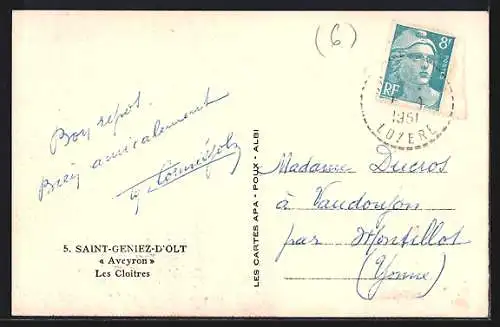 (6)
8F
POSTES
RF
1951
LOZERE
Bon repos.
Bien amicalement
5. SAINT-GENIEZ-D'OLT
« Aveyron »
Les Cloîtres
LES CARTES APA - POUX - ALBI
Madame Ducros
à Vaudoujon
par Montillot
(Yonne)